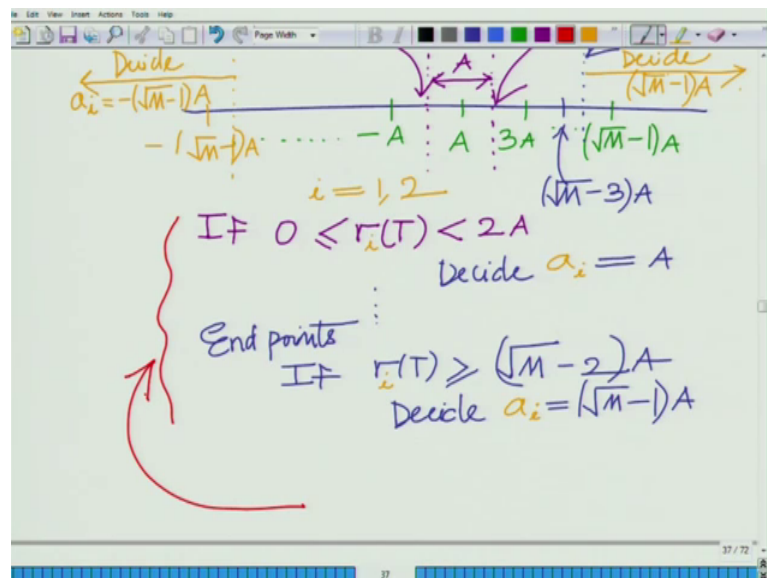 Edit View Insert Actions Tools Help
Page Width
B I
Decide
a_i = -(√M-1)A
A
Decide
(√M-1)A
-(√M-1)A ...... -A A 3A ... (√M-1)A
i = 1, 2
(√M-3)A
IF 0 ≤ r_i(T) < 2A
Decide a_i = A
⋮
End points
IF r_i(T) ≥ (√M-2)A
Decide a_i = (√M-1)A
37 / 72
37